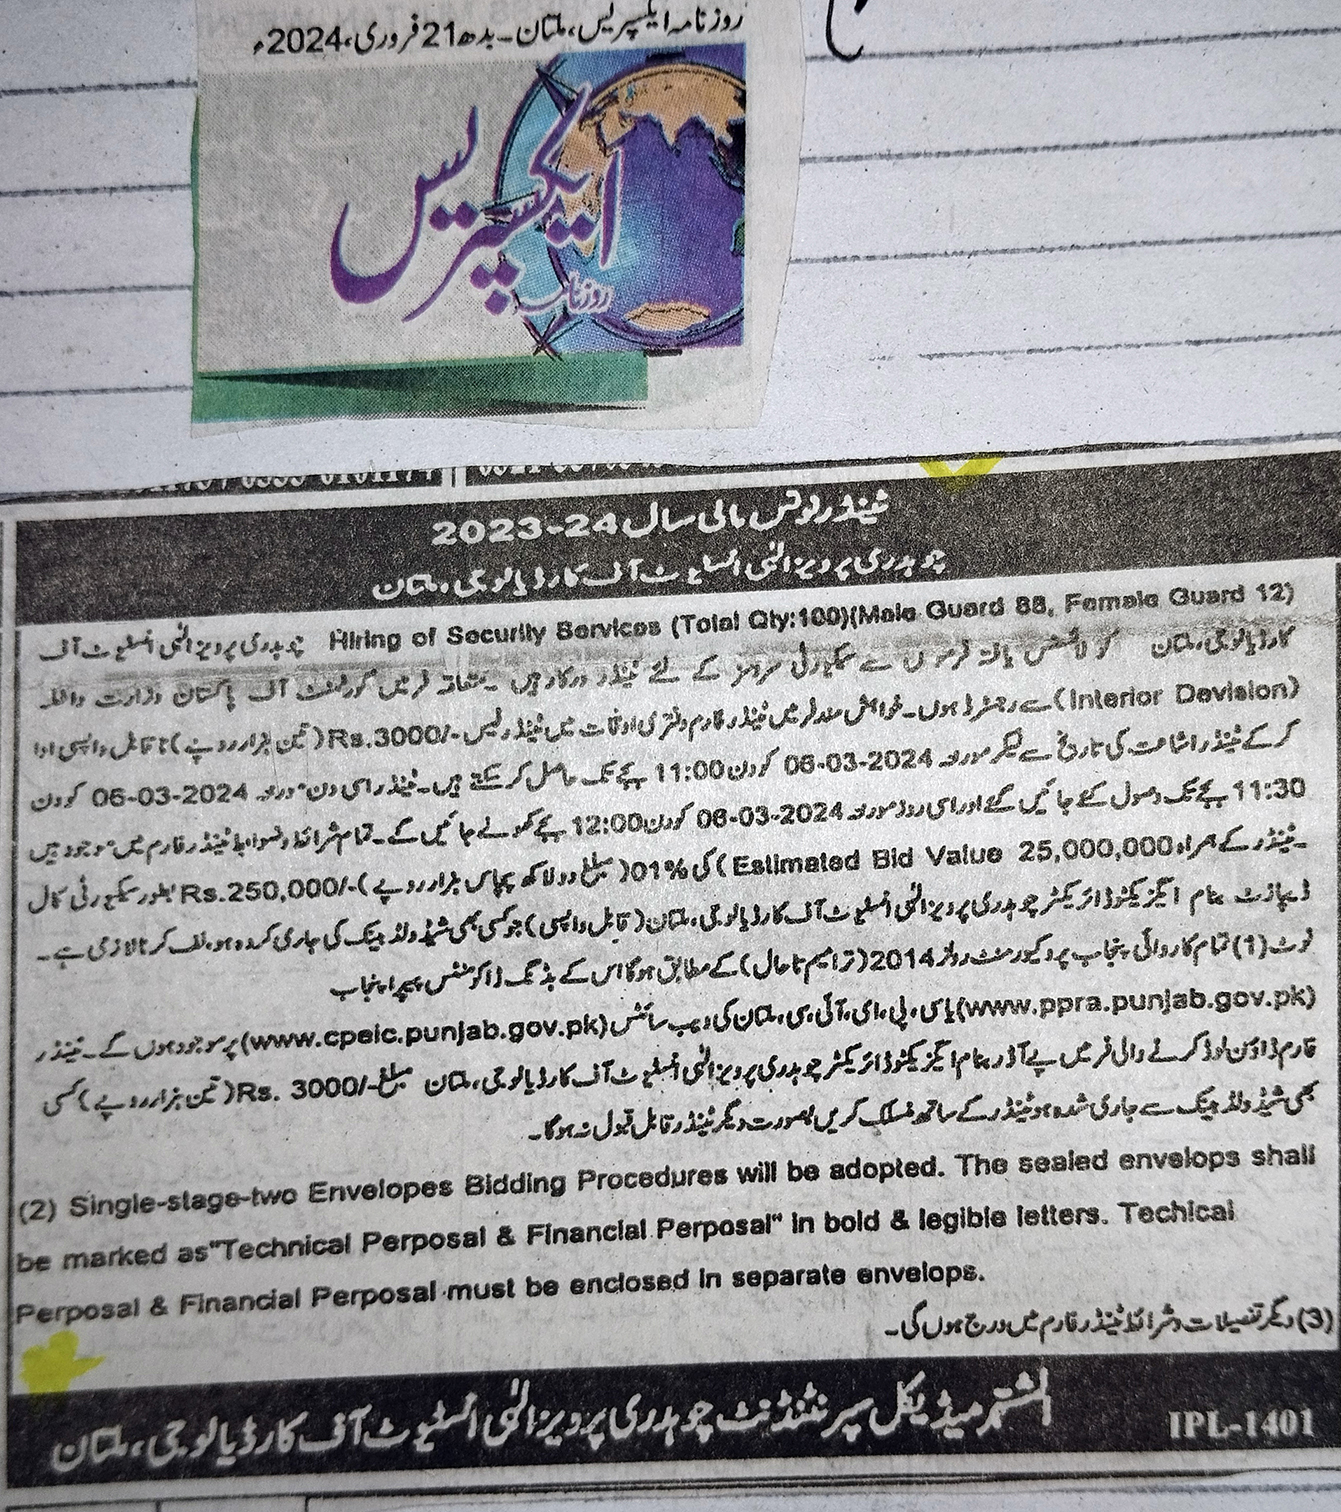 روزنامہ ایکسپریس، ملتان۔ بدھ 21 فروری، 2024ء
ایکسپریس
روزنامہ
ٹینڈر نوٹس مالی سال 2023-24
چوہدری پرویز الٰہی انسٹیٹیوٹ آف کارڈیالوجی، ملتان
Hiring of Security Services (Total Qty:100)(Male Guard 88, Female Guard 12) چوہدری پرویز الٰہی انسٹیٹیوٹ آف
کارڈیالوجی، ملتان کو لائسنس یافتہ فرموں سے سکیورٹی سروسز کے لئے ٹینڈر درکار ہیں۔ متعلقہ فرمیں گورنمنٹ آف پاکستان وزارت داخلہ
(Interior Devision) سے رجسٹرڈ ہوں۔ خواہش مند فرمیں ٹینڈر فارم دفتری اوقات میں ٹینڈر فیس -/Rs.3000 (تین ہزار روپے) ناقابل واپسی ادا
کر کے ٹینڈر اشاعت کی تاریخ سے لیکر مورخہ 06-03-2024 کو دن 11:00 بجے تک حاصل کر سکتے ہیں۔ ٹینڈر اسی دن مورخہ 06-03-2024 کو دن
11:30 بجے تک وصول کئے جائیں گے اور اسی روز مورخہ 06-03-2024 کو دن 12:00 بجے کھولے جائیں گے۔ تمام شرائط و ضوابط ٹینڈر فارم میں موجود ہیں
۔ ٹینڈر کے ہمراہ (Estimated Bid Value 25,000,000) کی 01% (مبلغ دو لاکھ پچاس ہزار روپے) -/Rs.250,000 بطور سکیورٹی کال
ڈیپازٹ بنام ایگزیکٹو ڈائریکٹر چوہدری پرویز الٰہی انسٹیٹیوٹ آف کارڈیالوجی، ملتان (قابل واپسی) جو کسی بھی شیڈولڈ بینک کی جاری کردہ ہو، لف کرنا لازمی ہے۔
نوٹ (1) تمام کاروائی پنجاب پروکیورمنٹ رولز 2014 (ترامیم تاحال) کے مطابق ہوگا اس کے بڈنگ ڈاکومنٹس پیپرا پنجاب
(www.ppra.punjab.gov.pk) یا سی، پی، ای، آئی، سی، ملتان کی ویب سائٹس (www.cpeic.punjab.gov.pk) پر موجود ہوں گے۔ ٹینڈر
فارم ڈاؤن لوڈ کرنے والی فرمیں پے آڈر بنام ایگزیکٹو ڈائریکٹر چوہدری پرویز الٰہی انسٹیٹیوٹ آف کارڈیالوجی، ملتان مبلغ -/Rs. 3000 (تین ہزار روپے) کسی
بھی شیڈولڈ بینک سے جاری شدہ ہو ٹینڈر کے ساتھ منسلک کریں بصورت دیگر ٹینڈر قابل قبول نہ ہوگا۔
(2) Single-stage-two Envelopes Bidding Procedures will be adopted. The sealed envelops shall
be marked as"Technical Perposal & Financial Perposal" in bold & legible letters. Techical
Perposal & Financial Perposal must be enclosed in separate envelops.
(3) دیگر تفصیلات و شرائط ٹینڈر فارم میں درج ہوں گی۔
المشتہر میڈیکل سپرنٹنڈنٹ چوہدری پرویز الٰہی انسٹیٹیوٹ آف کارڈیالوجی، ملتان
IPL-1401